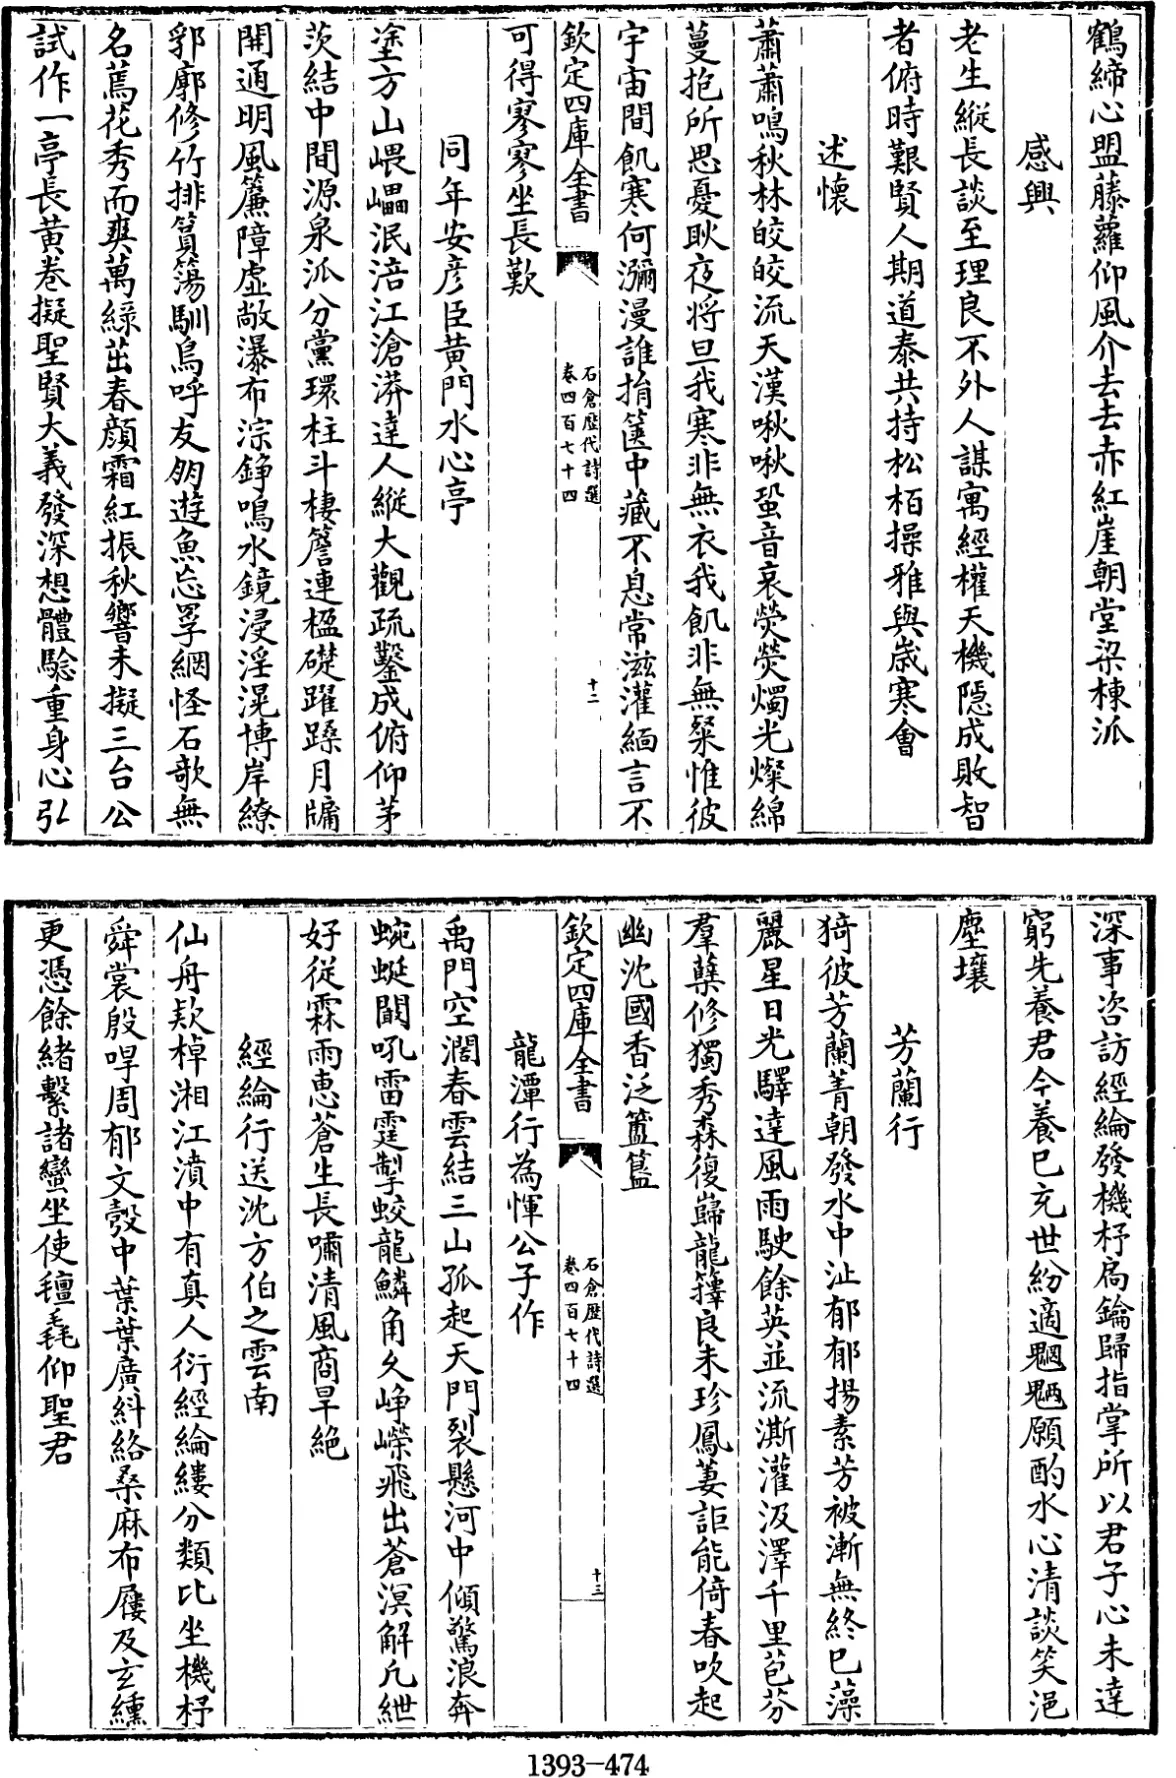 鶴締心盟藤蘿仰風介去去赤紅崖朝堂梁棟派
感興
老生縱長談至理良不外人謀寓經權天機隱成敗智
者俯時艱賢人期道泰共持松栢操雅與嵗寒會
述懷
蕭蕭鳴秋林皎皎流天漢啾啾蛩音哀熒熒燭光燦綿
蔓抱所思憂耿夜將旦我寒非無衣我飢非無粲惟彼
宇宙間飢寒何瀰漫誰捐篋中藏不息常滋灌緬言不
欽定四庫全書
石倉歷代詩選
卷四百七十四
十二
可得寥寥坐長歎
同年安彦臣黄門水心亭
塗方山嵔㠥泯涪江滄漭達人縱大觀疏鑿成俯仰茅
茨結中間源泉派分黨環柱斗棲簷連楹礎躍躁月牗
開通明風簾障虚敞瀑布淙錚鳴水鏡浸淫滉博岸繚
郛廓修竹排篔簜馴鳥呼友朋遊魚忘罦網怪石欹無
名蔫花秀而爽萬緑茁春顔霜紅振秋響未擬三台公
試作一亭長黄卷擬聖賢大義發深想體驗重身心弘
深事咨訪經綸發機杼扄鑰歸指掌所以君子心未達
窮先養君今養已充世紛適魍魎願酌水心清談笑浥
塵壤
芳蘭行
猗彼芳蘭菁朝發水中沚郁郁揚素芳被漸無終已藻
麗星日光驛達風雨駛餘英並流澌灌汲澤千里苞芬
羣蘖修獨秀森復巋龍籜良未珍鳳萋詎能倚春吹起
幽沈國香泛簠簋
欽定四庫全書
石倉歷代詩選
卷四百七十四
十三
龍潭行為惲公子作
禹門空濶春雲結三山孤起天門裂懸河中傾驚浪奔
蜿蜒闞吼雷霆掣蛟龍鱗角久崢嶸飛出蒼溟解凡紲
好從霖雨恵蒼生長嘯清風商旱絶
經綸行送沈方伯之雲南
仙舟欵棹湘江濆中有真人衍經綸縷分類比坐機杼
舜裳殷哻周郁文彀中葉葉廣斜絡桑麻布屨及玄纁
更憑餘緒繫諸蠻坐使氊毳仰聖君
1393-474